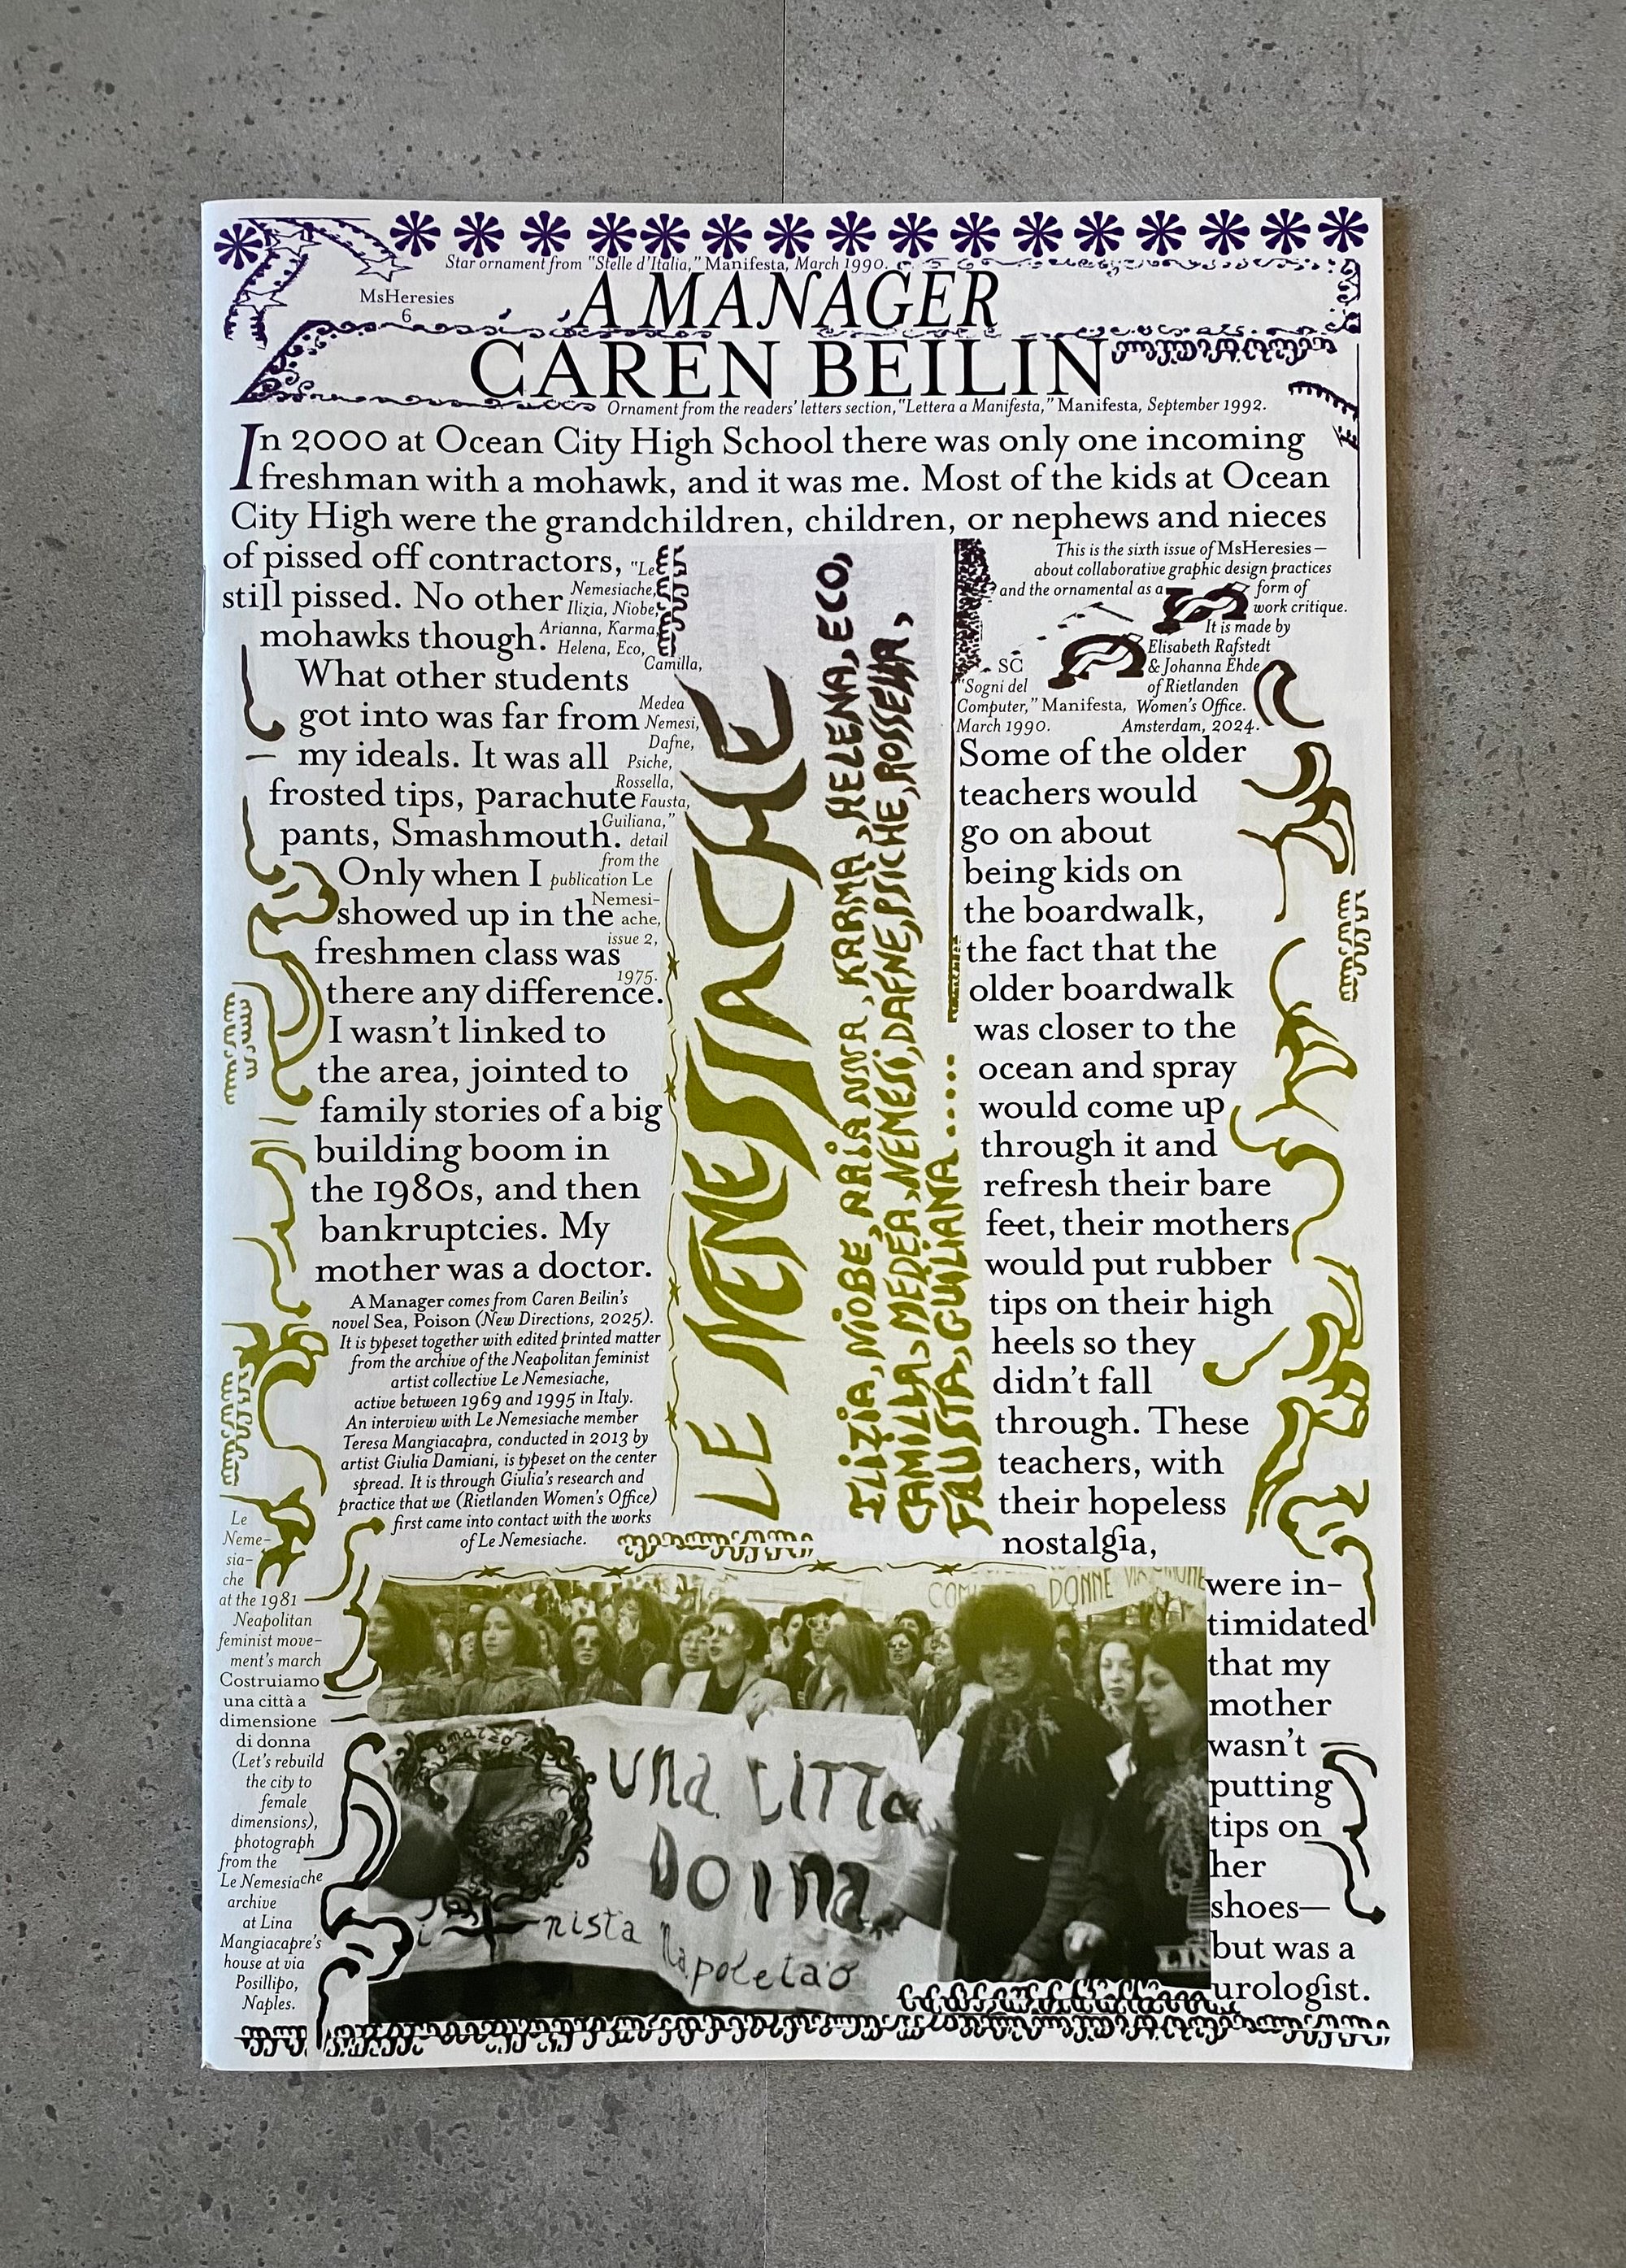 Star ornament from "Stelle d'Italia," Manifesta, March 1990.
MsHeresies
6
A MANAGER
CAREN BEILIN
Ornament from the readers' letters section, "Lettera a Manifesta," Manifesta, September 1992.
In 2000 at Ocean City High School there was only one incoming
freshman with a mohawk, and it was me. Most of the kids at Ocean
City High were the grandchildren, children, or nephews and nieces
of pissed off contractors,
still pissed. No other
mohawks though.
What other students
got into was far from
my ideals. It was all
frosted tips, parachute
pants, Smashmouth.
Only when I
showed up in the
freshmen class was
there any difference.
I wasn't linked to
the area, jointed to
family stories of a big
building boom in
the 1980s, and then
bankruptcies. My
mother was a doctor.
"Le
Nemesiache,
Ilizia, Niobe,
Arianna, Karma,
Helena, Eco,
Camilla,
Medea
Nemesi,
Dafne,
Psiche,
Rossella,
Fausta,
Guiliana,"
detail
from the
publication Le
Nemesi-
ache,
issue 2,
1975.
A Manager comes from Caren Beilin's
novel Sea, Poison (New Directions, 2025).
It is typeset together with edited printed matter
from the archive of the Neapolitan feminist
artist collective Le Nemesiache,
active between 1969 and 1995 in Italy.
An interview with Le Nemesiache member
Teresa Mangiacapra, conducted in 2013 by
artist Giulia Damiani, is typeset on the center
spread. It is through Giulia's research and
practice that we (Rietlanden Women's Office)
first came into contact with the works
of Le Nemesiache.
LE NEMESIACHE
ILIZIA, NIOBE, ARIANNA, KARMA, HELENA, ECO,
CAMILLA, MEDEA, NEMESI, DAFNE, PSICHE, ROSSELLA,
FAUSTA, GUILIANA......
This is the sixth issue of MsHeresies—
about collaborative graphic design practices
and the ornamental as a form of
work critique.
It is made by
Elisabeth Rafstedt
& Johanna Ehde
of Rietlanden
Women's Office.
Amsterdam, 2024.
SC
"Sogni del
Computer," Manifesta,
March 1990.
Some of the older
teachers would
go on about
being kids on
the boardwalk,
the fact that the
older boardwalk
was closer to the
ocean and spray
would come up
through it and
refresh their bare
feet, their mothers
would put rubber
tips on their high
heels so they
didn't fall
through. These
teachers, with
their hopeless
nostalgia,
were in-
timidated
that my
mother
wasn't
putting
tips on
her
shoes—
but was a
urologist.
Le
Neme-
sia-
che
at the 1981
Neapolitan
feminist move-
ment's march
Costruiamo
una città a
dimensione
di donna
(Let's rebuild
the city to
female
dimensions),
photograph
from the
Le Nemesiache
archive
at Lina
Mangiacapre's
house at via
Posillipo,
Naples.
DONNE VIA
una CITTa
Donna
nista napoletao
LIN